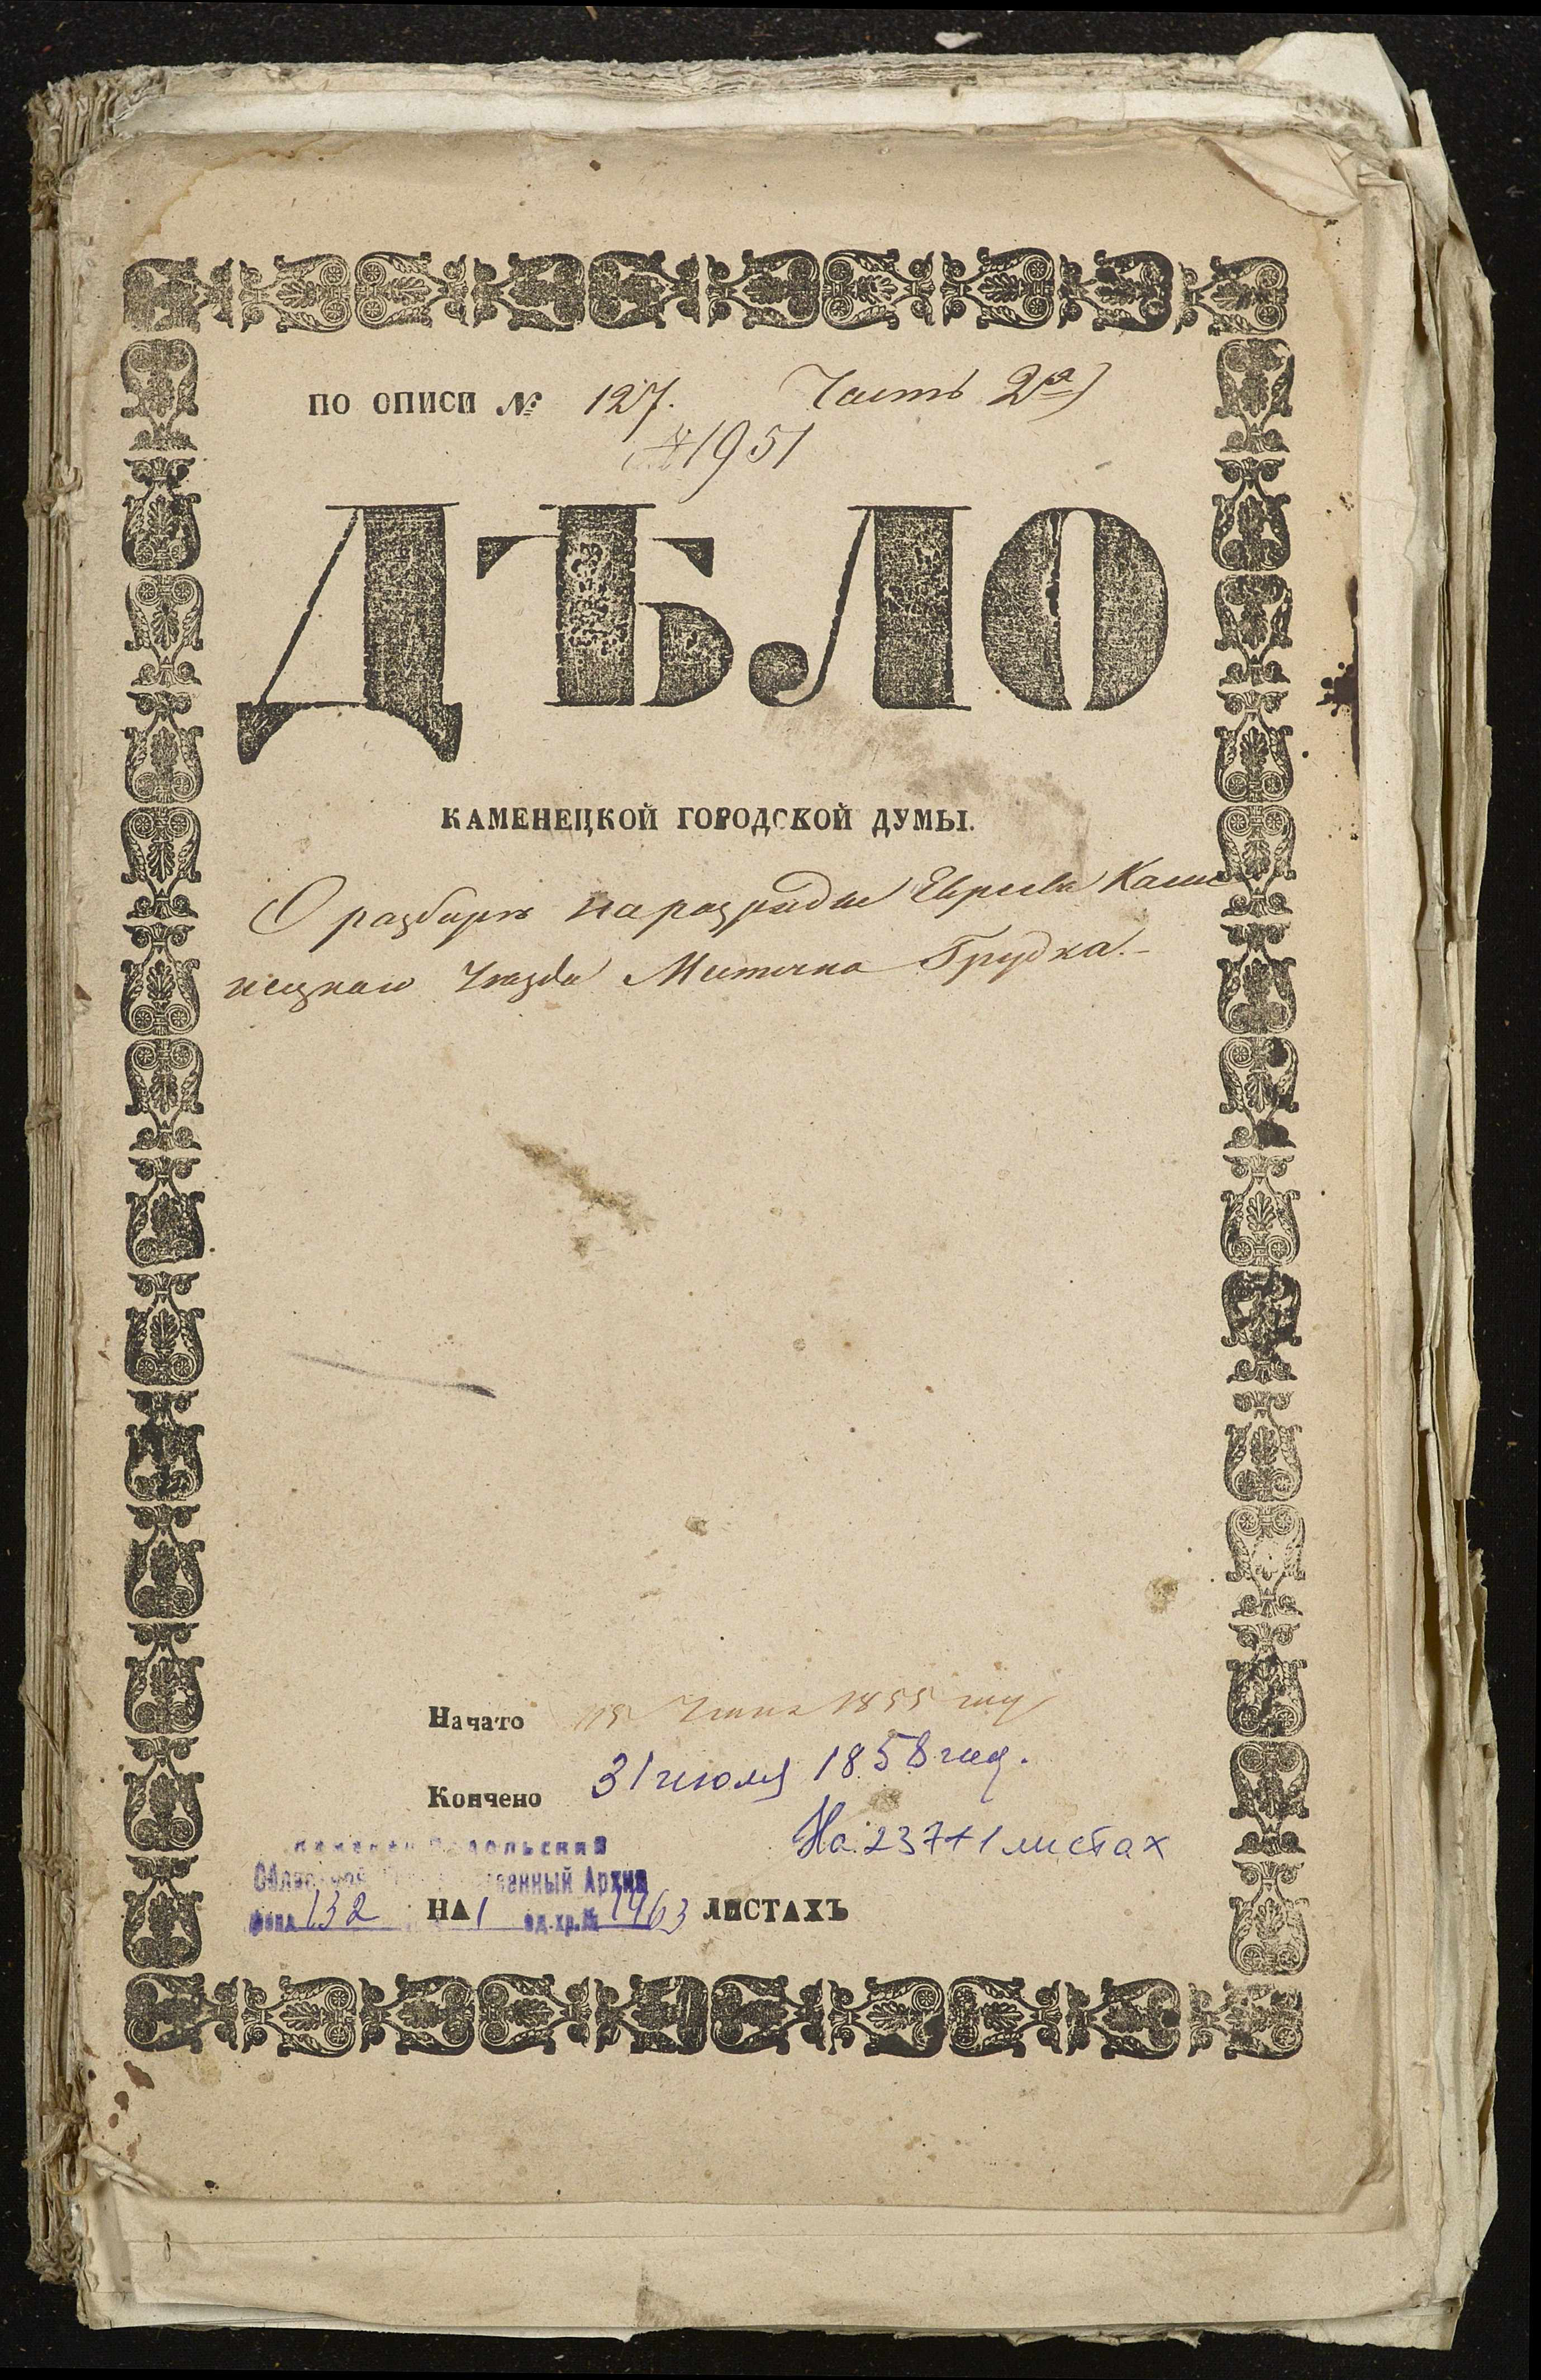 ПО ОПИСИ № 127. Часть 2я)
№ 1951
ДѢЛО
КАМЕНЕЦКОЙ ГОРОДСКОЙ ДУМЫ.
О разборѣ на разряды Евреевъ Каме
нецкаго Уѣзда Мѣстечка Грудка.
Начато 1855 году
Кончено 31 июля 1858 год.
На 237+1 листах
Подольский
Областной Государственный Архив
Фонд 132 1 ед.хр.№ 1963
НА ЛИСТАХЪ